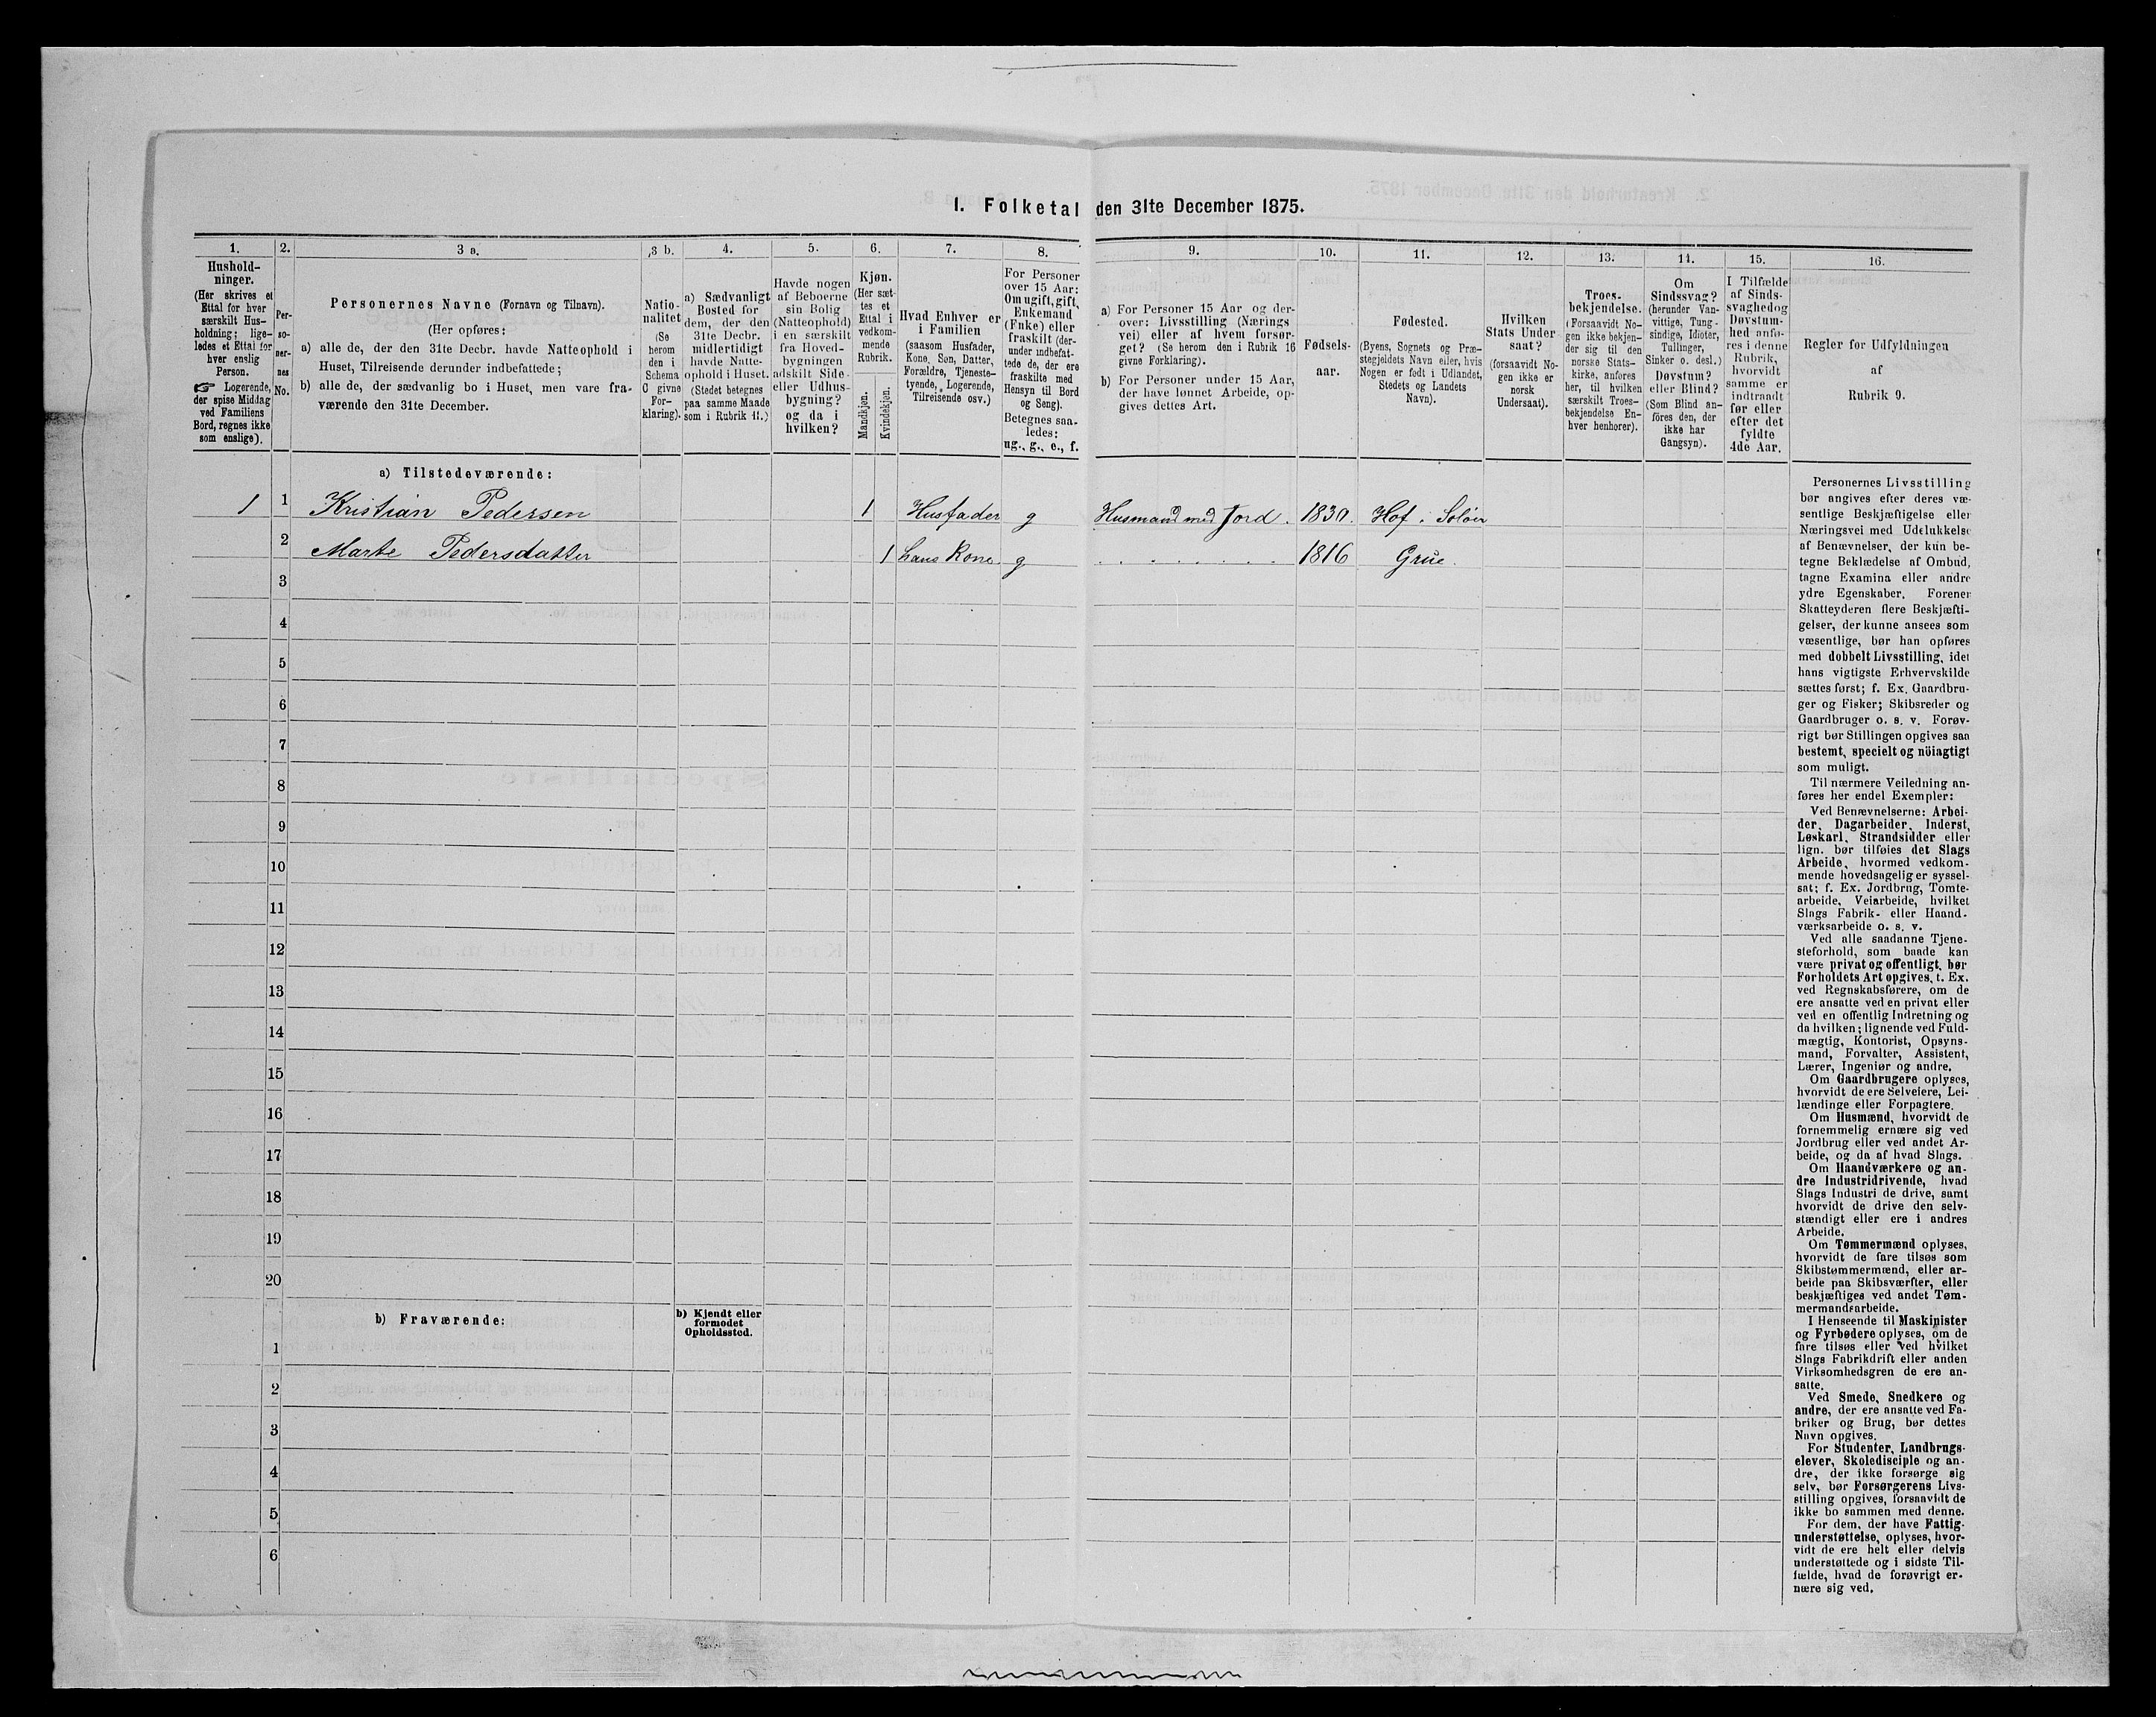 1. Folketal den 31te December 1875.
1.
2.
3 a.
3 b.
4.
5.
6.
7.
8.
9.
10.
11.
12.
13.
14.
15.
16.
Hushold-
ninger.
(Her skrives et
Ettal for hver
særskilt Hus-
holdning; lige-
ledes et Ettal for
hver enslig
Person.
☞ Logerende,
der spise Middag
ved Familiens
Bord, regnes ikke
som enslige).
Per-
so-
ner-
nes
No.
Personernes Navne (Fornavn og Tilnavn).
(Her opføres:
a) alle de, der den 31te Decbr. havde Natteophold i
Huset, Tilreisende derunder indbefattede;
b) alle de, der sædvanlig bo i Huset, men vare fra-
værende den 31te December.
Natio-
nalitet
(Se
herom
den i
Schema
C givne
For-
klaring).
a) Sædvanligt
Bosted for
dem, der den
31te Decbr.
midlertidigt
havde Natte-
ophold i Huset.
(Stedet betegnes
paa samme Maade
som i Rubrik 11.)
Havde nogen
af Beboerne
sin Bolig
(Natteophold)
i en særskilt
fra Hoved-
bygningen
adskilt Side-
eller Udhus-
bygning?
og da i
hvilken?
Kjøn.
(Her sæt-
tes et
Ettal i
vedkom-
mende
Rubrik.
Mandkjøn.
Kvindekjøn.
Hvad Enhver er
i Familien
(saasom Husfader,
Kone, Søn, Datter,
Forældre, Tjeneste-
tyende, Logerende,
Tilreisende osv.)
For Personer
over 15 Aar:
Om ugift, gift,
Enkemand
(Enke) eller
fraskilt (der-
under indbefat-
tede de, der ere
fraskilte med
Hensyn til Bord
og Seng).
Betegnes saa-
ledes:
ug., g., e., f.
a) For Personer 15 Aar og der-
over: Livsstilling (Nærings
vei) eller af hvem forsør-
get? (Se herom den i Rubrik 16
givne Forklaring).
b) For Personer under 15 Aar,
der have lønnet Arbeide, op-
gives dettes Art.
Fødsels-
aar.
Fødested.
(Byens, Sognets og Præ-
stegjeldets Navn eller, hvis
Nogen er født i Udlandet,
Stedets og Landets
Navn).
Hvilken
Stats Under
saat?
(forsaavidt No-
gen ikke er
norsk
Undersaat).
Troes-
bekjendelse.
(Forsaavidt No-
gen ikke bekjen-
der sig til den
norske Stats-
kirke, anføres
her, til hvilken
særskilt Troes-
bekjendelse En-
hver henhører).
Om
Sindssvag?
(herunder Van-
vittige, Tung-
sindige, Idioter,
Tullinger,
Sinker o. desl.)
Døvstum?
eller Blind?
(Som Blind an-
føres den, der
ikke har
Gangsyn).
I Tilfælde
af Sinds-
svaghed og
Døvstum-
hed anfø-
res i denne
Rubrik,
hvorvidt
samme er
indtraadt
før eller
efter det
fyldte
4de Aar.
Regler for Udfyldningen
af
Rubrik 9.
a) Tilstedeværende:
1 1 Kristian Pedersen 1 Husfader g Husmand med Jord. 1830. Hof i Soløer
2 Marte Pedersdatter 1 hans Kone. g . . . . . . . . 1816 Grue.
3
4
5
6
7
8
9
10
11
12
13
14
15
16
17
18
19
20
b) Fraværende:
b) Kjendt eller
formodet
Opholdssted.
1
2
3
4
5
6
Personernes Livsstilling
bør angives efter deres væ-
sentlige Beskjæftigelse eller
Næringsvei med Udelukkelse
af Benævnelser, der kun be-
tegne Beklædelse af Ombud,
tagne Examina eller andre
ydre Egenskaber. Forener
Skatteyderen flere Beskjæfti-
gelser, der kunne ansees som
væsentlige, bør han opføres
med dobbelt Livsstilling, idet
hans vigtigste Erhvervskilde
sættes først; f. Ex. Gaardbru-
ger og Fisker; Skibsreder og
Gaardbruger o. s. v. Forøv-
rigt bør Stillingen opgives saa
bestemt, specielt og nöiagtigt
som muligt.
Til nærmere Veiledning an-
føres her endel Exempler:
Ved Benævnelserne: Arbei-
der, Dagarbeider, Inderst,
Løskarl, Strandsidder eller
lign. bør tilføies det Slags
Arbeide, hvormed vedkom-
mende hovedsagelig er syssel-
sat; f. Ex. Jordbrug, Tomte-
arbeide, Veiarbeide, hvilket
Slags Fabrik- eller Haand-
værksarbeide o. s. v.
Ved alle saadanne Tjene-
steforhold, som baade kan
være privat og offentligt, bør
Forholdets Art opgives, f. Ex.
ved Regnskabsførere, om de
ere ansatte ved en privat eller
ved en offentlig Indretning og
da hvilken; lignende ved Fuld-
mægtig, Kontorist, Opsyns-
mand, Forvalter, Assistent,
Lærer, Ingeniør og andre.
Om Gaardbrugere oplyses,
hvorvidt de ere Selveiere, Lei-
lændinge eller Forpagtere.
Om Husmænd, hvorvidt de
fornemmelig ernære sig ved
Jordbrug eller ved andet Ar-
beide, og da af hvad Slags.
Om Haandværkere og an-
dre Industridrivende, hvad
Slags Industri de drive, samt
hvorvidt de drive den selv-
stændigt eller ere i andres
Arbeide.
Om Tømmermænd oplyses,
hvorvidt de fare tilsøs som
Skibstømmermænd, eller ar-
beide paa Skibsværfter, eller
beskjæftiges ved andet Tøm-
mermandsarbeide.
I Henseende til Maskinister
og Fyrbødere oplyses, om de
fare tilsøs eller ved hvilket
Slags Fabrikdrift eller anden
Virksomhedsgren de ere an-
satte.
Ved Smede, Snedkere og
andre, der ere ansatte ved Fa-
briker og Brug, bør dettes
Navn opgives.
For Studenter, Landbrugs-
elever, Skoledisciple og an-
dre, der ikke forsørge sig
selv, bør Forsørgerens Livs-
stilling opgives, forsaavidt de
ikke bo sammen med denne.
For dem, der have Fattig-
understøttelse, oplyses, hvor-
vidt de ere helt eller delvis
understøttede og i sidste Til-
fælde, hvad de forøvrigt er-
nære sig ved.